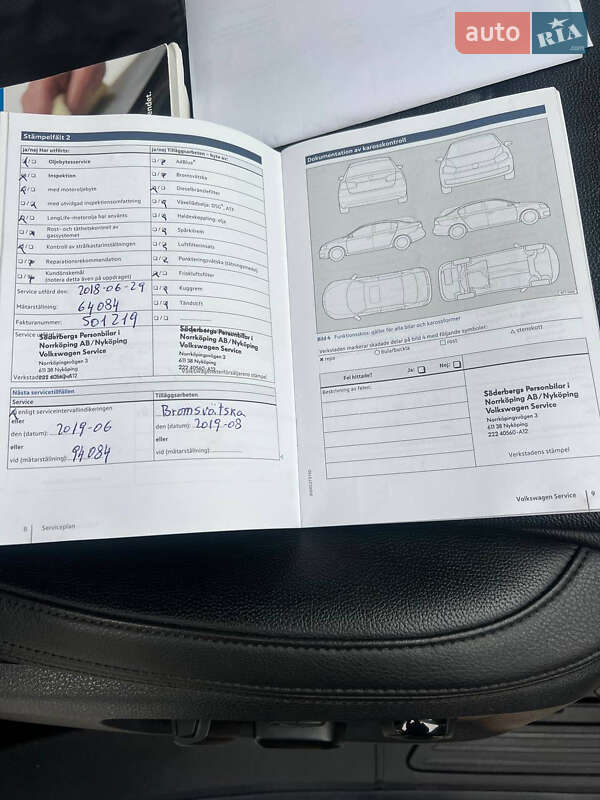 auto RIA.com
endet.
Stämpelfält 2
ja/nej Har utförts:
ja/nej Tilläggsarbeten – byte av:
Oljebytesservice
AdBlue®
Inspektion
Bromsvätska
med motoroljebyte
Dieselbränslefilter
med utvidgad inspektionsomfattning
Växellådsolja: DSG®, A18
LongLife-motorolja har använts
Haldexkoppling: olja
Rost- och täthetskontroll av gassystemet
Spårkilrem
Kontroll av strålkastarinställningen
Luftfilterinsats
Reparationsrekommendation
Punkteringsvätska (tätningsmedel)
Kundönskemål
(notera detta även på uppdraget)
Friskluftsfilter
Kuggrem
Tändstift
Service utförd den: 2018-06-29
Mätarställning: 64084
Fakturanummer: 501219
Söderbergs Personbilar i
Norrköping AB/Nyköping
Volkswagen Service
Norrköpingsvägen 3
611 38 Nyköping
222 40560-A12
Söderbergs Personbilar i
Norrköping AB/Nyköping
Volkswagen Service
Norrköpingsvägen 3
611 38 Nyköping
222 40560-A12
Nästa servicetillfällen
Service
Tilläggsarbeten
enligt serviceintervallindikeringen
Bromsvätska
eller
den (datum): 2019-06
den (datum): 2019-08
eller
eller
vid (mätarställning): 94084
vid (mätarställning):
8 Serviceplan
Dokumentation av karosskontroll
Bild 4 Funktionsskiss: gäller för alla bilar och karossformer
Verkstaden markerar skadade delar på bild 4 med följande symboler:
× repa ○ Bula/buckla □ rost △ stenskott
Fel hittade? Ja: Nej:
Beskrivning av felen:
Söderbergs Personbilar i
Norrköping AB/Nyköping
Volkswagen Service
Norrköpingsvägen 3
611 38 Nyköping
222 40560-A12
Verkstadens stämpel
Volkswagen Service 9